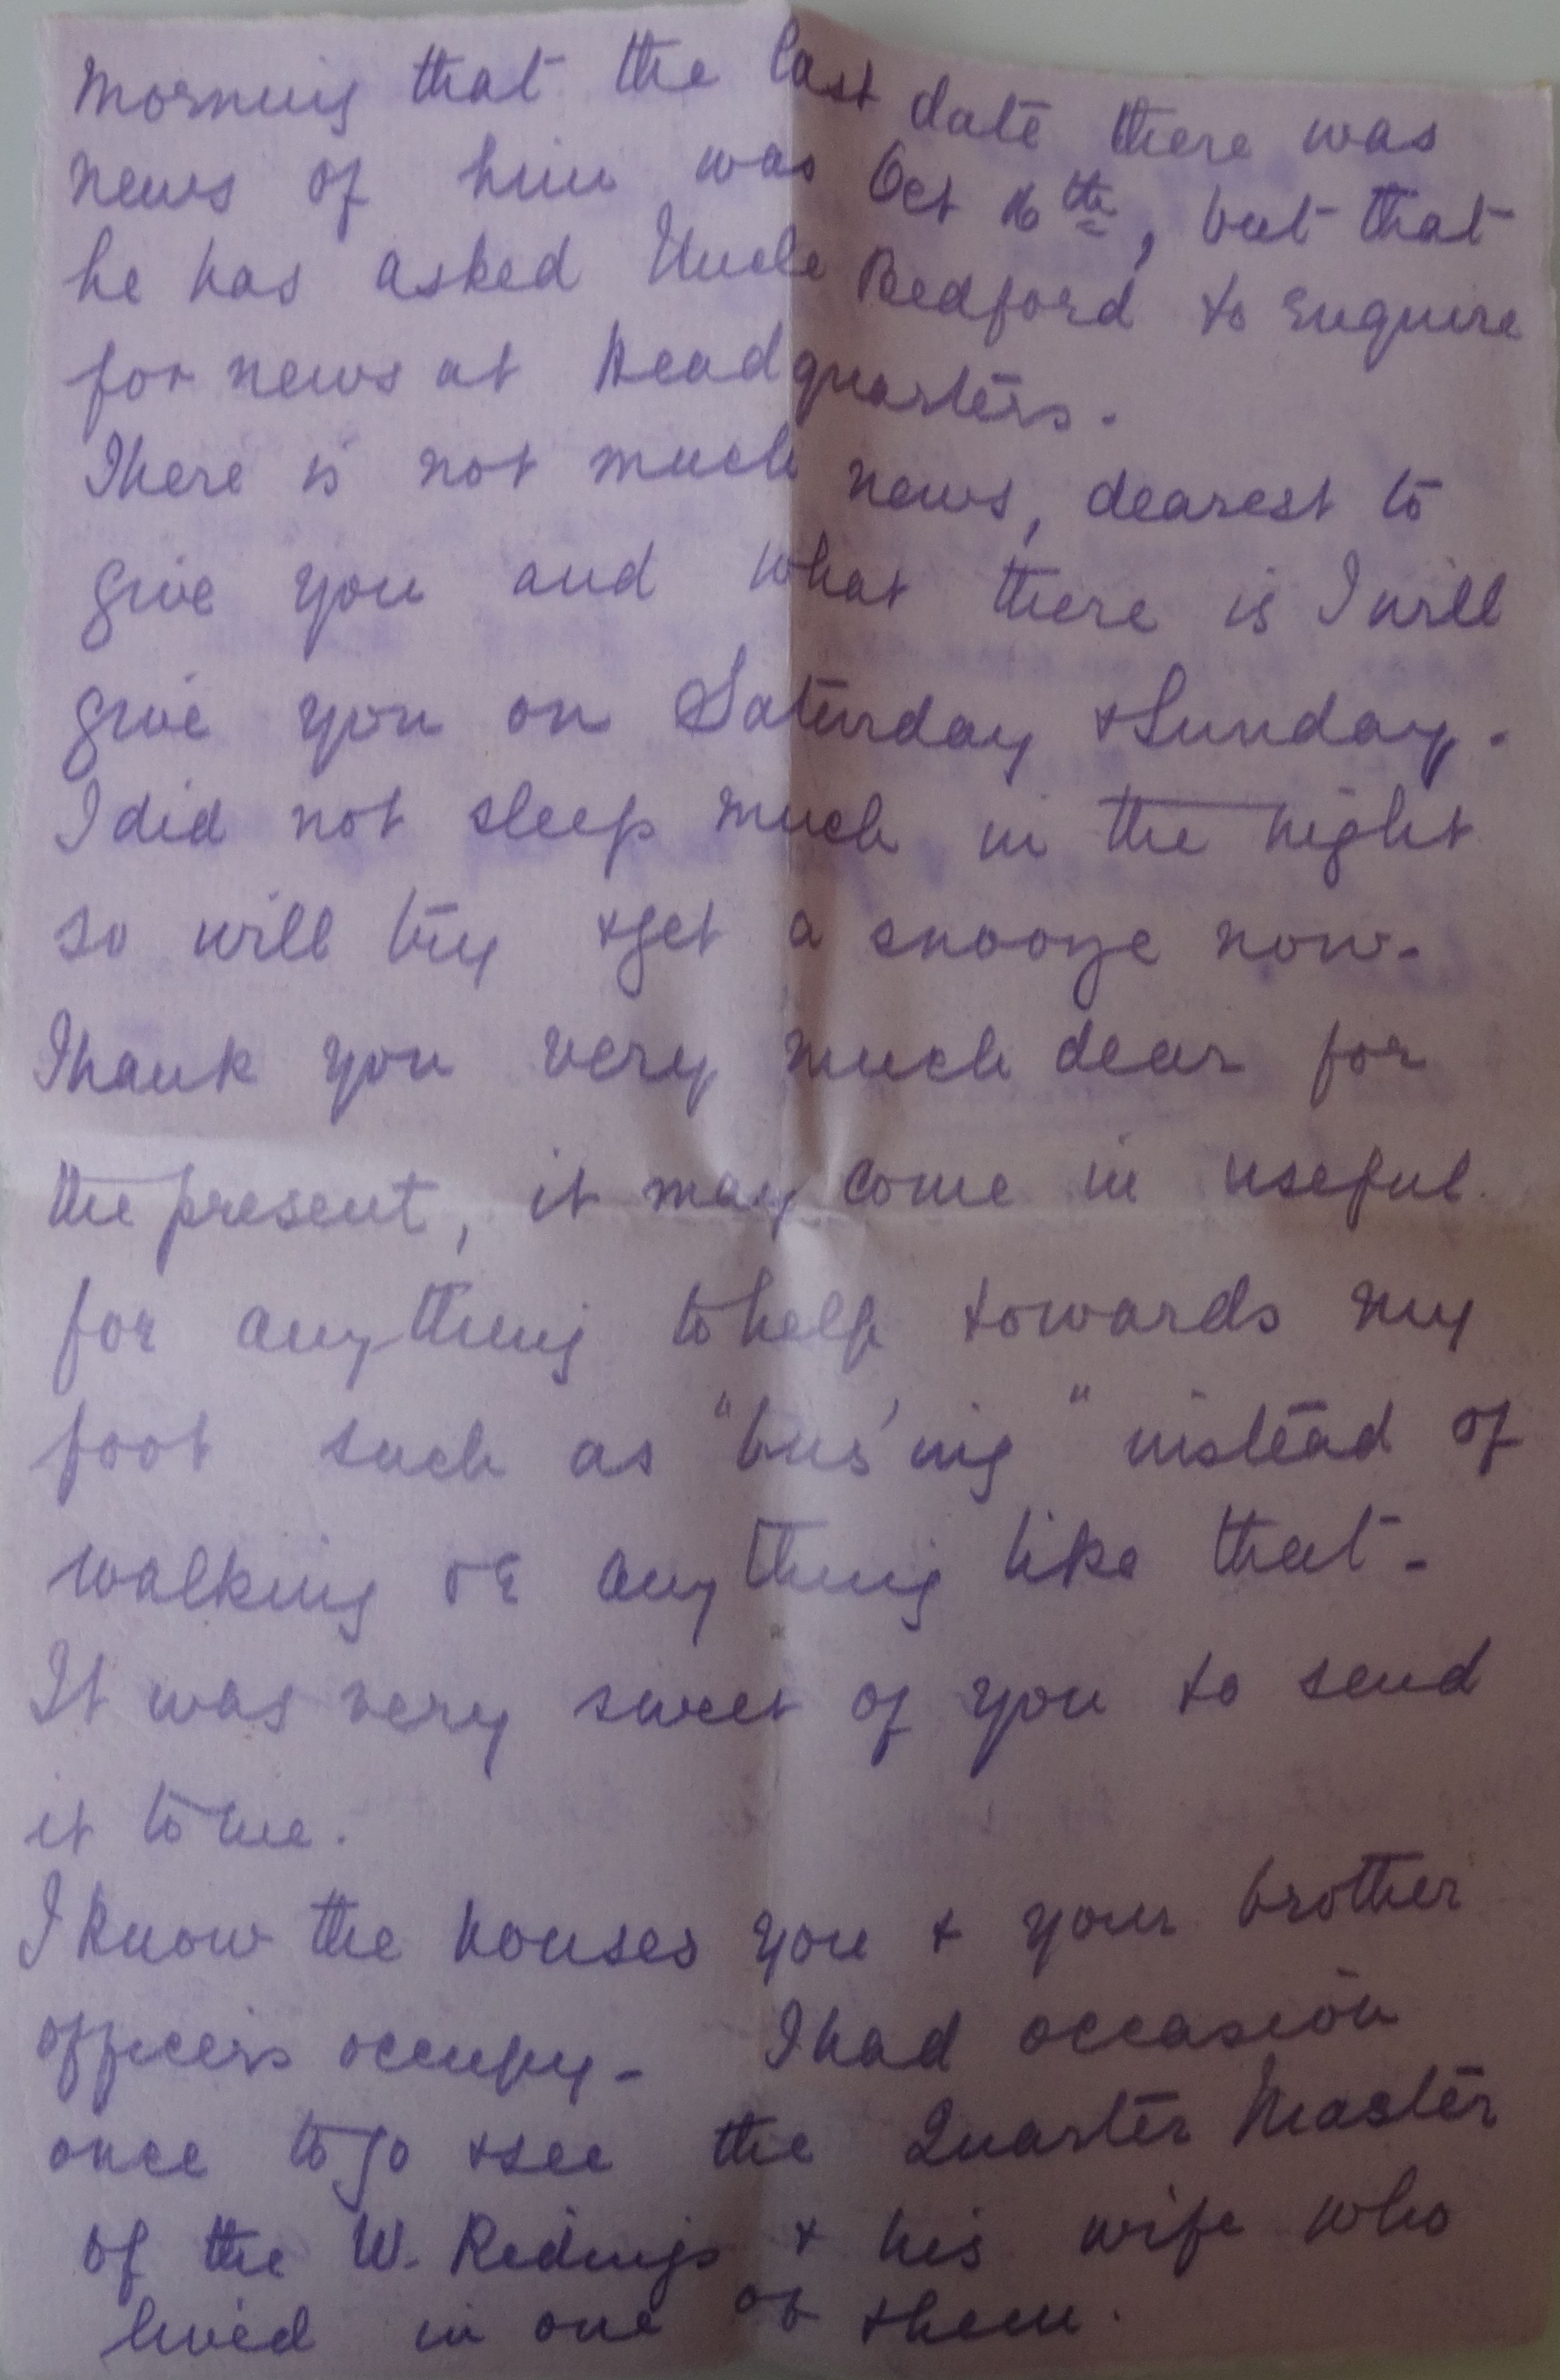 morning that the last date there was
news of him was Oct 16th, but that
he has asked Uncle Bedford to enquire
for news at Headquarters.
There is not much news, dearest to
give you and what there is I will
give you on Saturday & Sunday.
I did not sleep much in the night
so will try & get a snooze now.
Thank you very much dear for
the present, it may come in useful
for anything to help towards my
foot such as "bus'ing" instead of
walking or anything like that.
It was very sweet of you to send
it to me.
I know the houses you & your brother
officers occupy. I had occasion
once to go & see the Quarter Master
of the W. Ridings & his wife who
lived in one of them.